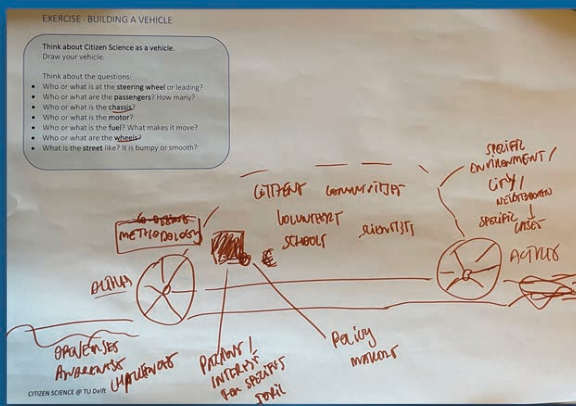 EXERCISE - BUILDING A VEHICLE
Think about Citizen Science as a vehicle.
Draw your vehicle.
Think about the questions:
Who or what is at the steering wheel or leading?
Who or what are the passengers? How many?
Who or what is the chassis?
Who or what is the motor?
Who or what is the fuel? What makes it move?
Who or what are the wheels?
What is the street like? It is bumpy or smooth?
SPECIFIC
ENVIRONMENT /
CITY /
SPECIFIC
CITIZENS COMMUNITIES
VOLUNTEERS
SCIENTISTS
SCHOOLS
METHODOLOGY
OPENNESS
AWARENESS
CHALLENGES
INTEREST
FOR SPECIFIC
TOPIC
POLICY
MAKERS
CITIZEN SCIENCE @ TU Delft